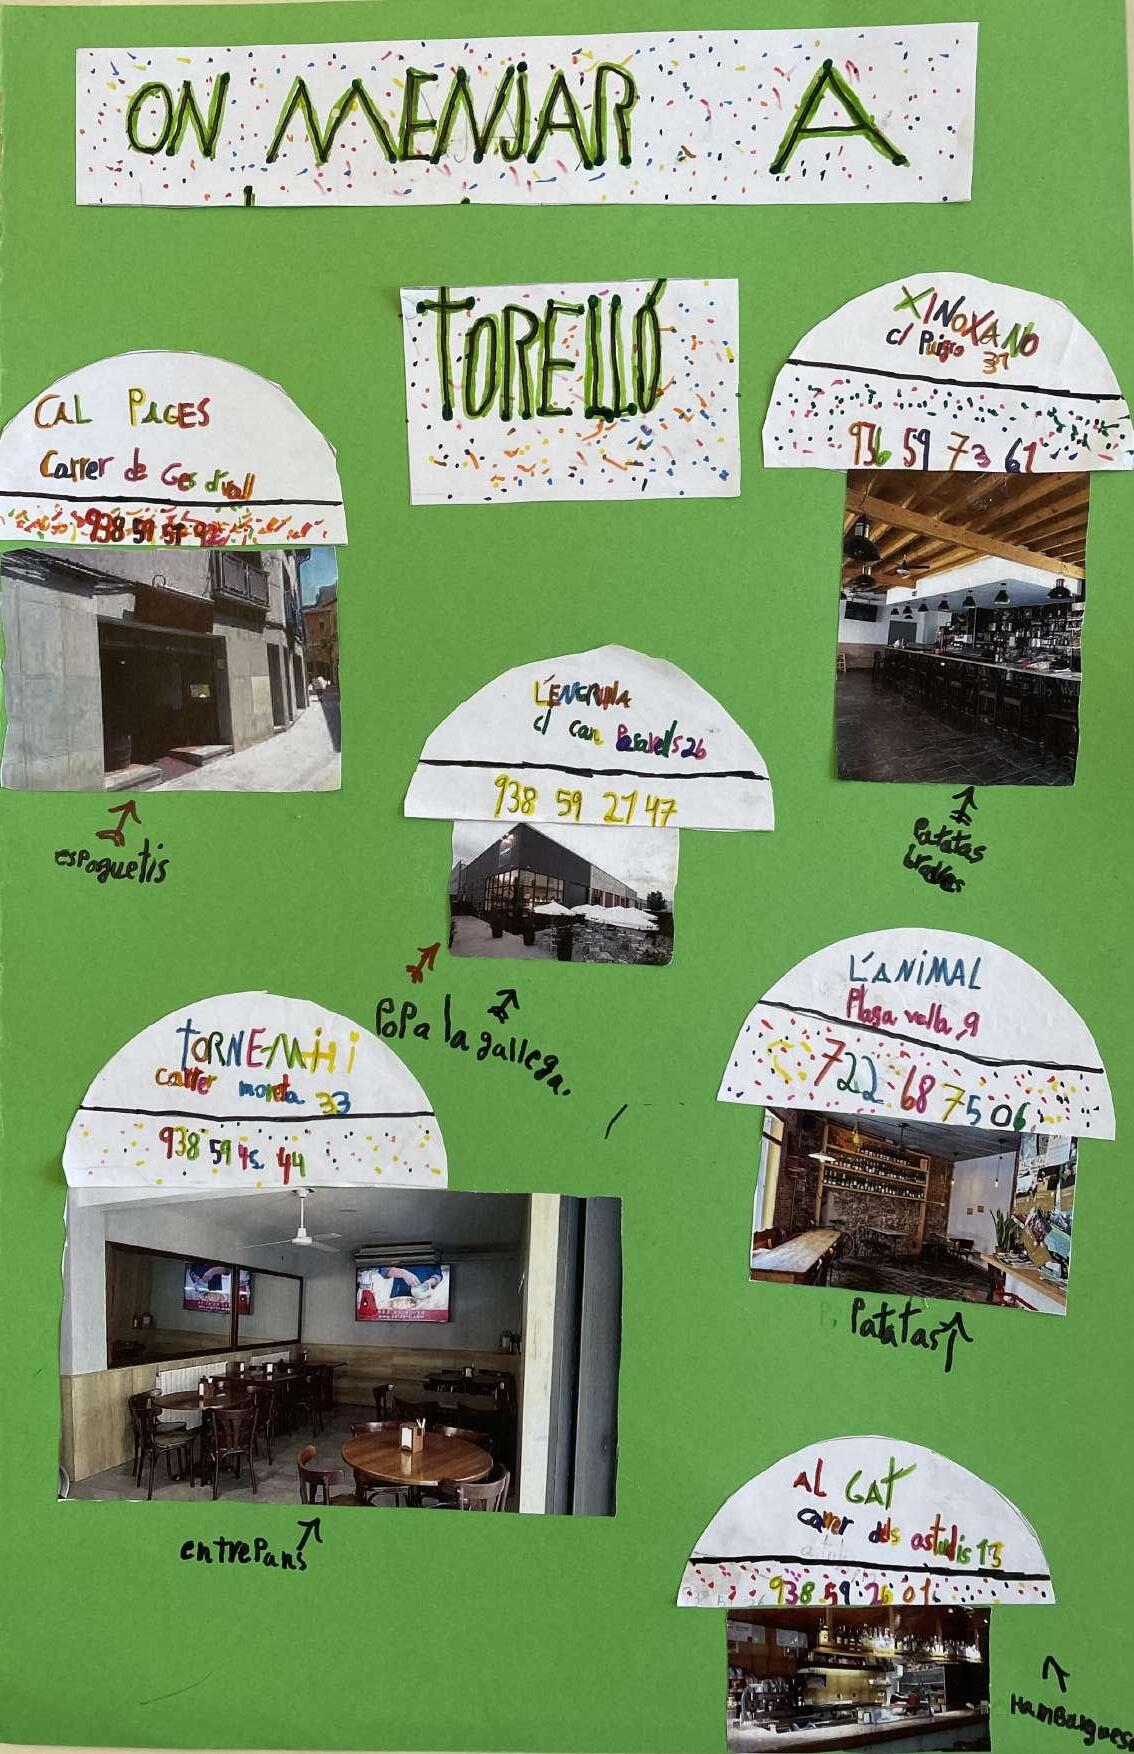 ON MENJAR A
TORELLÓ
CAL PAGES
Carrer de Ges d'vall
938 59 51 92
espaguetis
XINOXANO
c/ Puigro 37
936 59 73 61
Patatas
braves
L'ENGRUNA
c/ can Pararells 26
938 59 21 47
POPa la gallega.
L'ANIMAL
Plasa vella, 9
722 68 75 06
Patatas
TORNE-MHI
carrer moreta 33
938 59 45 44
entrePans
AL GAT
carrer dels astudis 13
938 59 26 01
HamBurgueses